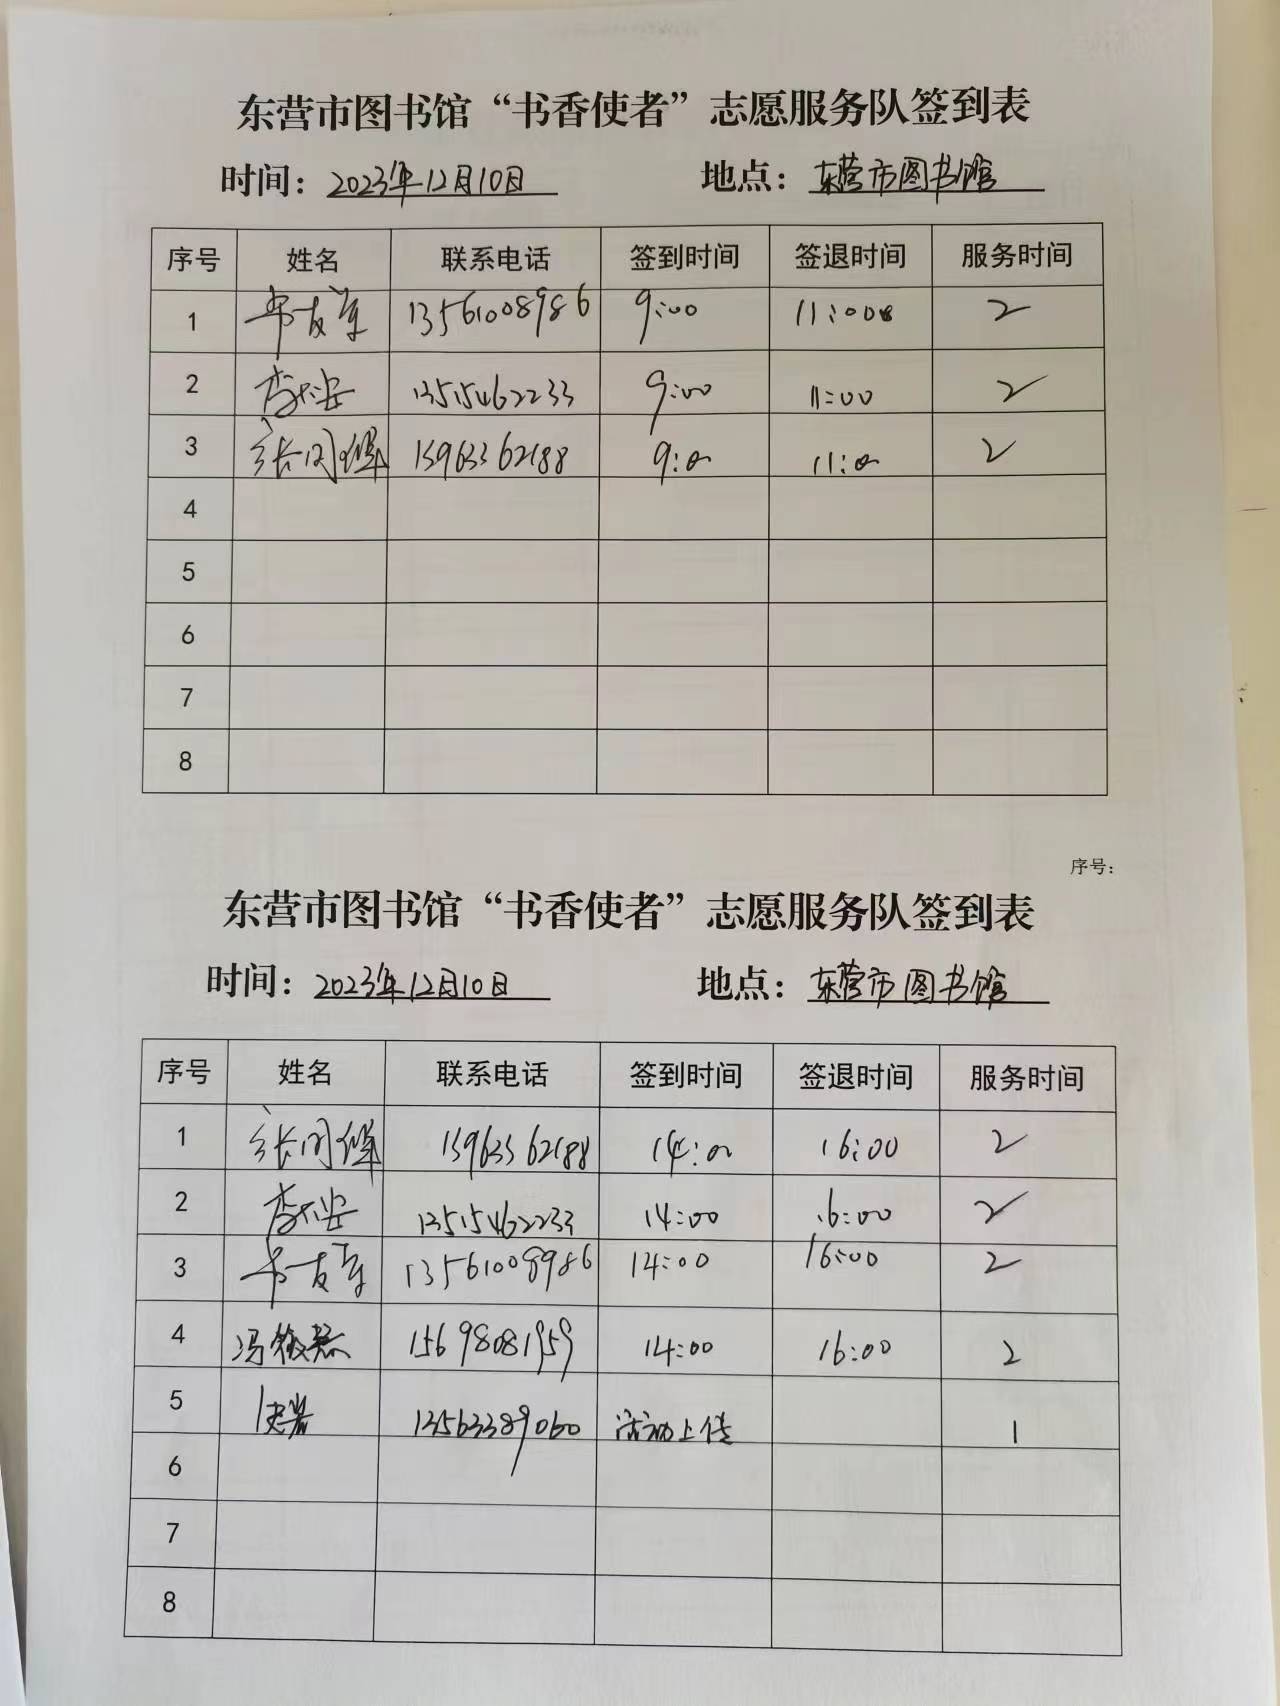 东营市图书馆“书香使者”志愿服务队签到表
时间：2023年12月10日 地点：东营市图书馆
序号 姓名 联系电话 签到时间 签退时间 服务时间
1 13561008986 9:00 11:00 2
2 13515462233 9:00 11:00 2
3 张闪婵 15963362188 9:00 11:00 2
4
5
6
7
8
序号：
东营市图书馆“书香使者”志愿服务队签到表
时间：2023年12月10日 地点：东营市图书馆
序号 姓名 联系电话 签到时间 签退时间 服务时间
1 张闪婵 15963362188 14:00 16:00 2
2 13515462233 14:00 16:00 2
3 13561008986 14:00 16:00 2
4 冯 15698081959 14:00 16:00 2
5 13563389060 活动上传 1
6
7
8